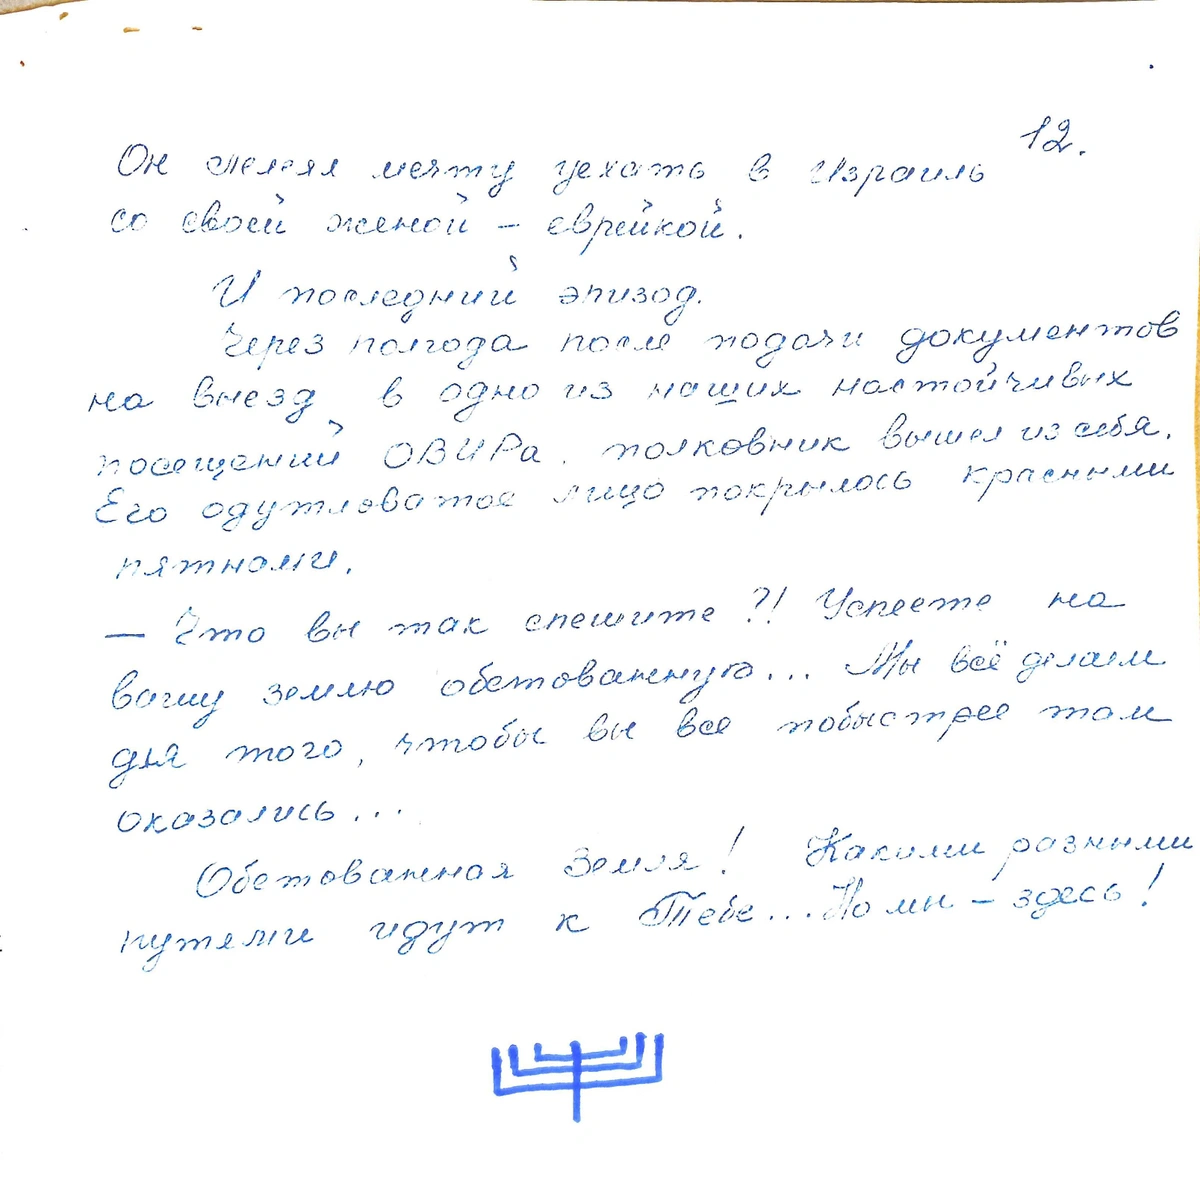 12.
Он лелеял мечту уехать в Израиль
со своей женой - еврейкой.
И последний эпизод.
Через полгода после подачи документов
на выезд в одно из наших настойчивых
посещений ОВИРа, полковник вышел из себя.
Его одутловатое лицо покрылось красными
пятнами.
— Что вы так спешите?! Успеете на
вашу землю обетованную... Мы всё делаем
для того, чтобы вы все побыстрее там
оказались...
Обетованная Земля! Какими разными
путями идут к Тебе... Но мы - здесь!